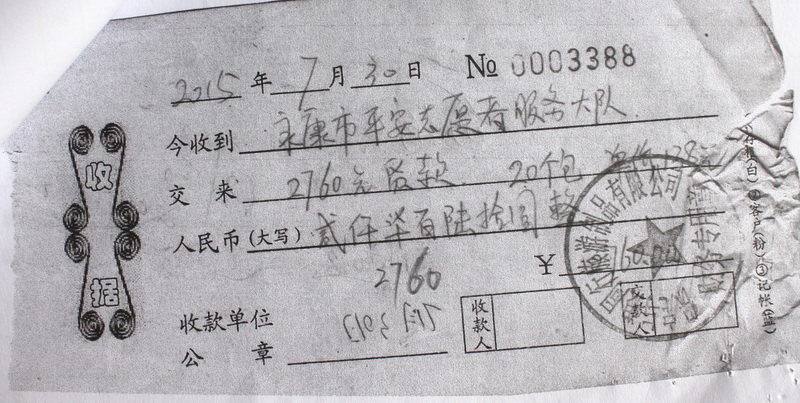 收据
2015年7月30日 № 0003388
今收到 永康市平安志愿者服务大队
交来 2760元货款 20个包 单价138元
人民币(大写) 贰仟柒百陆拾圆整
¥
2760
收款单位
公章
收款人
交款人
制品有限公司
财务专用章
(白) ②客户(粉) ③记帐(蓝)